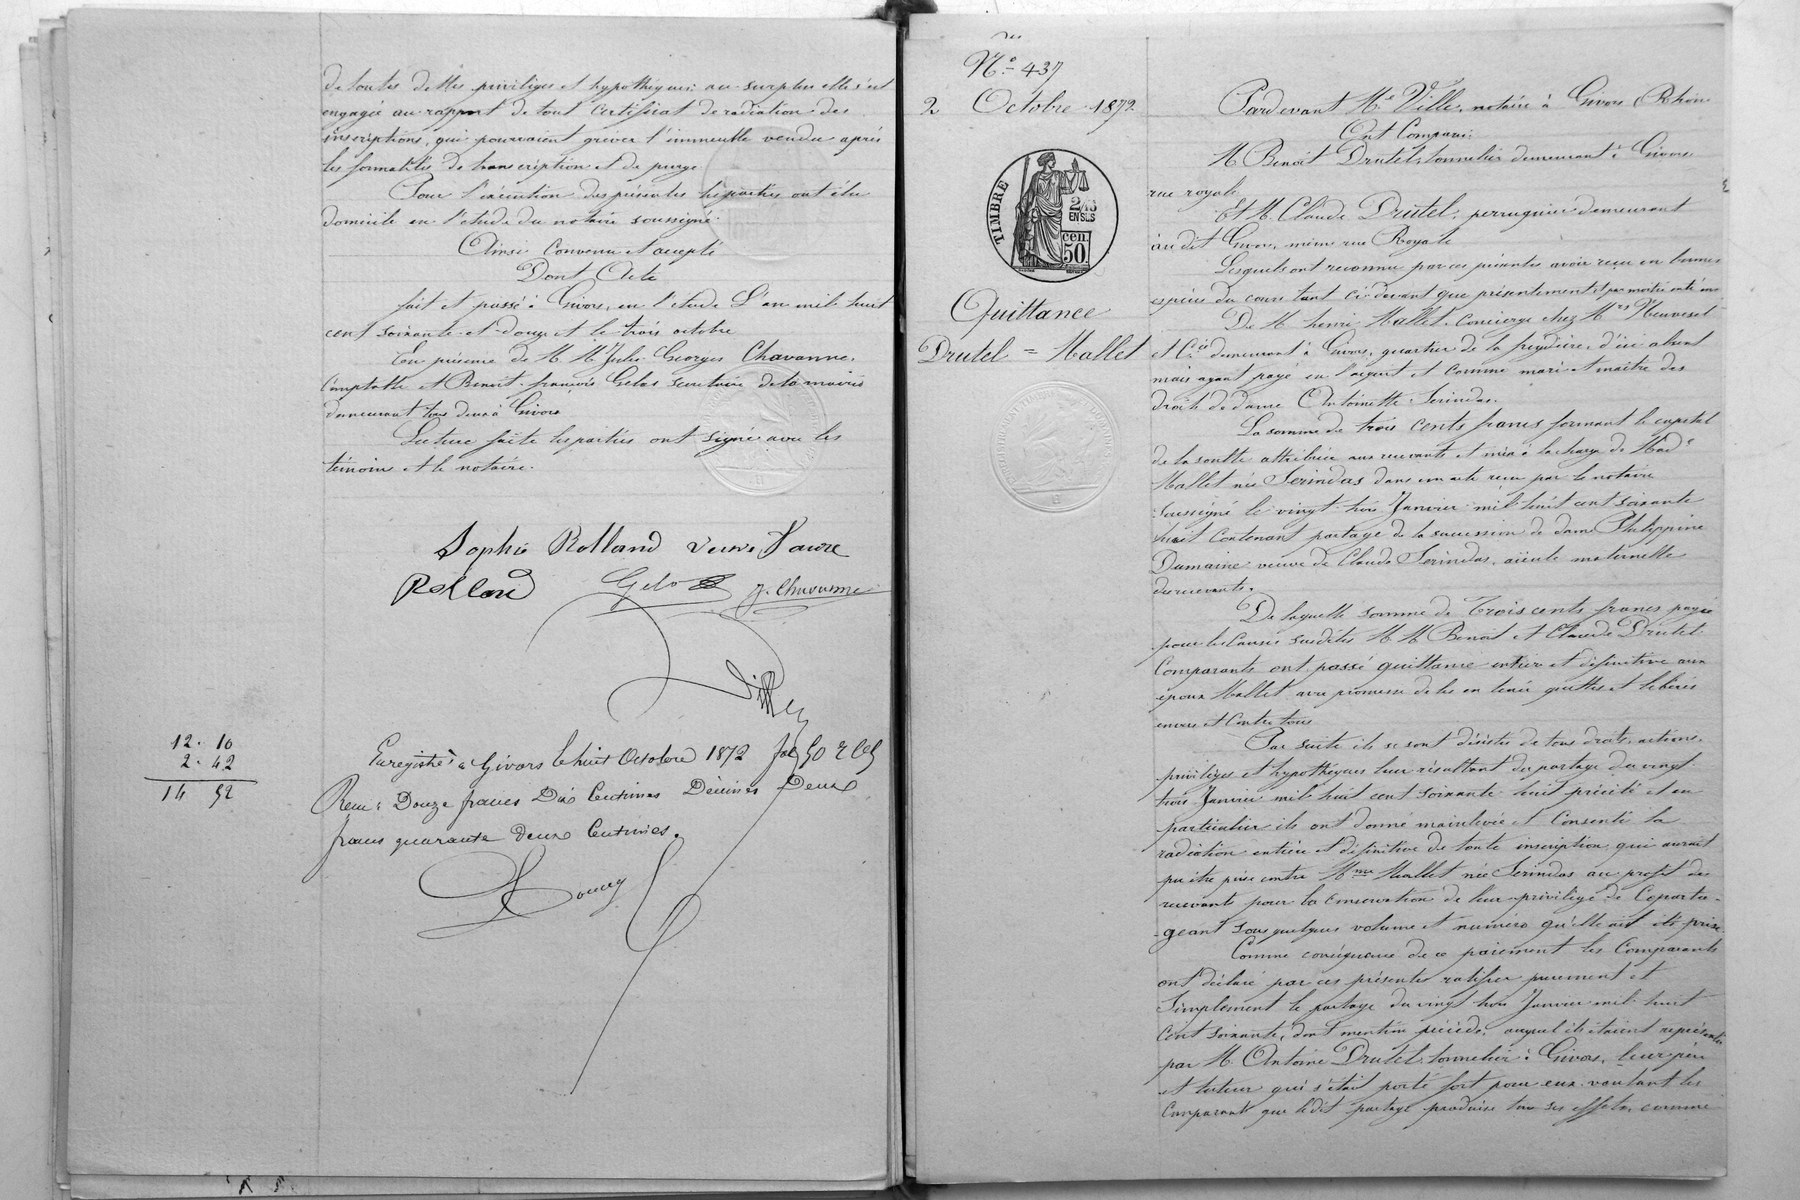 de toutes dettes privilèges et hypothèques; au surplus elle s'est
engagée au rapport de tout certificat de radiation des
inscriptions, qui pourraient grever l'immeuble vendu après
les formalités de transcription et de purge.
Pour l'exécution des présentes les parties ont élu
domicile en l'étude du notaire soussigné.
Ainsi convenu et accepté
Dont Acte
fait et passé à Givors, en l'étude L'an mil huit
cent soixante et douze et le trois octobre
En présence de M. M. Jules Georges Chavanne,
comptable et Benoit françois Gelas secrétaire de la mairie
demeurant tous deux à Givors
Lecture faite les parties ont signé avec les
témoins et le notaire.
Sophie Rolland veuve Favre
Rolland Gelas J. Chavanne
Ville
12. 10
2. 42
14 52
Enregistré à Givors le huit Octobre 1872 fol 50
Reçu : Douze francs Dix Centimes Décimes Deux
francs quarante deux Centimes.
N° 437
2 Octobre 1872
TIMBRE
2/10
EN SUS
cen.
50
Quittance
Drutel = Mallet
Pardevant Me Ville, notaire à Givors (Rhône
Ont Comparu
M Benoit Drutel, tonnelier demeurant à Givors
rue royale
Et M. Claude Drutel, perruquier demeurant
audit Givors, même rue Royale
Lesquels ont reconnu par ces présentes avoir reçu en bonnes
espèces du cours tant ci-devant que présentement et par moitié entre eux
De M henri Mallet concierge chez Mrs Neuvesel
et Cie demeurant à Givors, quartier de la freydière, d'ici absent
mais ayant payé en l'acquit et comme mari et maître des
droits de dame Antoinette Serindas.
La somme de trois cents francs formant le capital
de la soulte attribuée aux recevants et mise à la charge de Made
Mallet née Serindas dans un acte reçu par le notaire
soussigné le vingt trois Janvier mil huit cent soixante
huit contenant partage de la succession de dame Philippine
Dumaine veuve de Claude Serindas, aïeule maternelle
des recevants.
De laquelle somme de Trois cents francs payée
pour les causes susdites M M Benoit et Claude Drutel
Comparants ont passé quittance entière et définitive aux
époux Mallet avec promesse de les en tenir quittes et libérés
envers et contre tous
Par suite ils se sont désistés de tous droits, actions,
privilèges et hypothèques leur résultant du partage du vingt
trois Janvier mil huit cent soixante huit précité et en
particulier ils ont donné mainlevée et consenti la
radiation entière et définitive de toute inscription qui aurait
pu être prise contre Mme Mallet née Serindas au profit des
recevants pour la conservation de leur privilège de Coparta-
-geant sous quelques volume et numéro qu'elle ait été prise
Comme conséquence de ce paiement les Comparants
ont déclaré par ces présentes ratifier purement et
simplement le partage du vingt trois Janvier mil huit
cent soixante, dont mention précède, auquel ils étaient représentés
par M. Antoine Drutel tonnelier à Givors, leur père
et tuteur qui s'était porté fort pour eux voulant les
comparants que ledit partage produise tous ses effets, comme